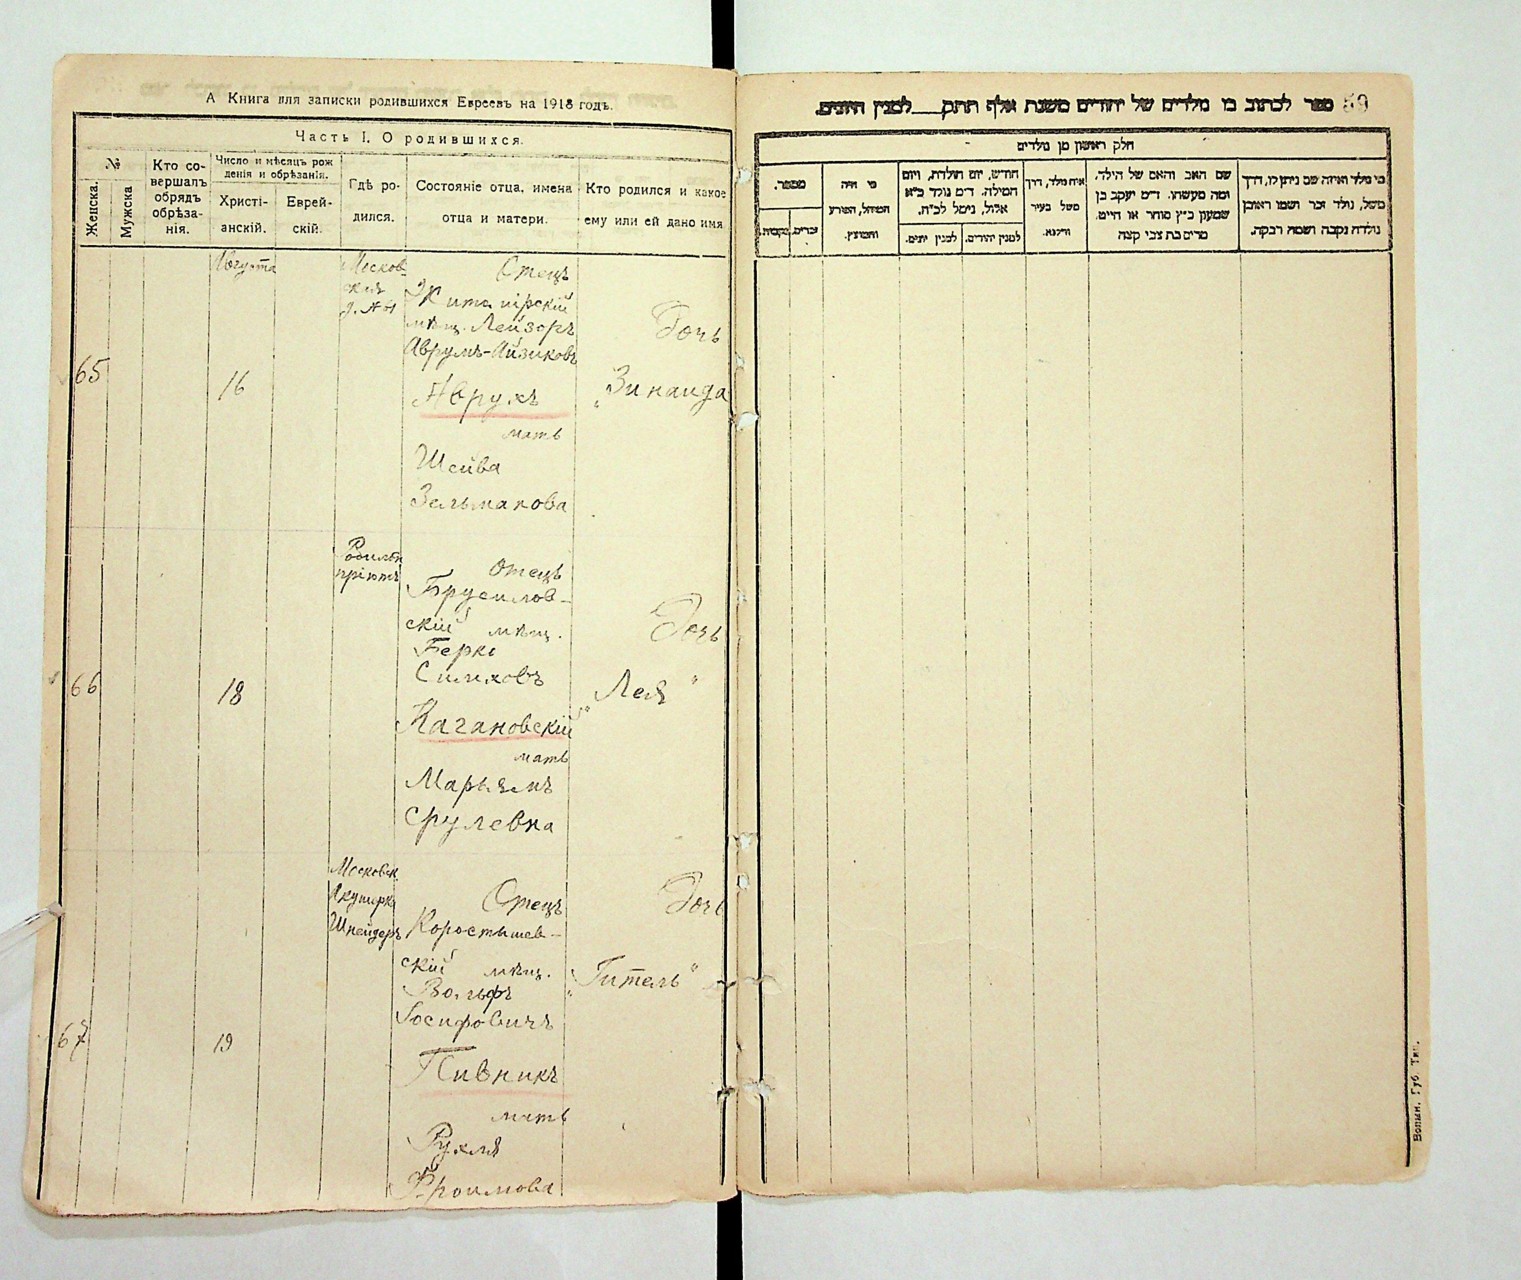 А Книга для записки родившихся Евреевъ на 1918 годъ.
Часть I. О родившихся.
№
Женска.
Мужска
Кто со-
вершалъ
обрядъ
обрѣза-
нія.
Число и мѣсяцъ рож
денія и обрѣзанія.
Христі-
анскій.
Еврей-
скій.
Гдѣ ро-
дился.
Состояніе отца, имена
отца и матери.
Кто родился и какое
ему или ей дано имя
65
Августа
16
Москов-
ская
д. №
Отецъ
мѣщ. Лейзоръ
Аврумъ-Айзиковъ
Аврухъ
мать
Шейва
Зельманова
Дочь
"Зинаида
66
18
Родильн
пріютъ
Отецъ
Брусилов-
скій мѣщ.
Берко
Симховъ
Кагановскій
мать
Марьямъ
Срулевна
Дочь
"Лея"
67
19
Московск
Акушерка
Шнейдеръ
Отецъ
Коростышев-
скій мѣщ.
Вольфъ
Іосифовичъ
Пивникъ
мать
Рухля
Фроимова
Дочь
"Гитель"
59
ספר לכתוב בו נולדים של יהודים משנת אלף תתק___למנין היונים.
חלק ראשון מן נולדים
מי נולד ואיזה שם ניתן לו, דרך
משל, נולד זכר ושמו ראובן
נולדה נקבה ושמה רבקה.
שם האב והאם של הילד,
ומה מעשהו. ד״מ יעקב בן
שמעון כ״ץ סוחר או חייט.
מרים בת צבי קצה
איה נולד, דרך
משל בעיר
ווילנא.
חודש, יום הולדת, ויום
המילה. ד״מ נולד כ״א
אלול, נימל לכ״ח.
למנין יהודים.
למנין יונים.
מי היה
המוהל, הפורע
והמוצץ.
מספר.
זכרים.
נקבות.
Волын. Губ. Тип.